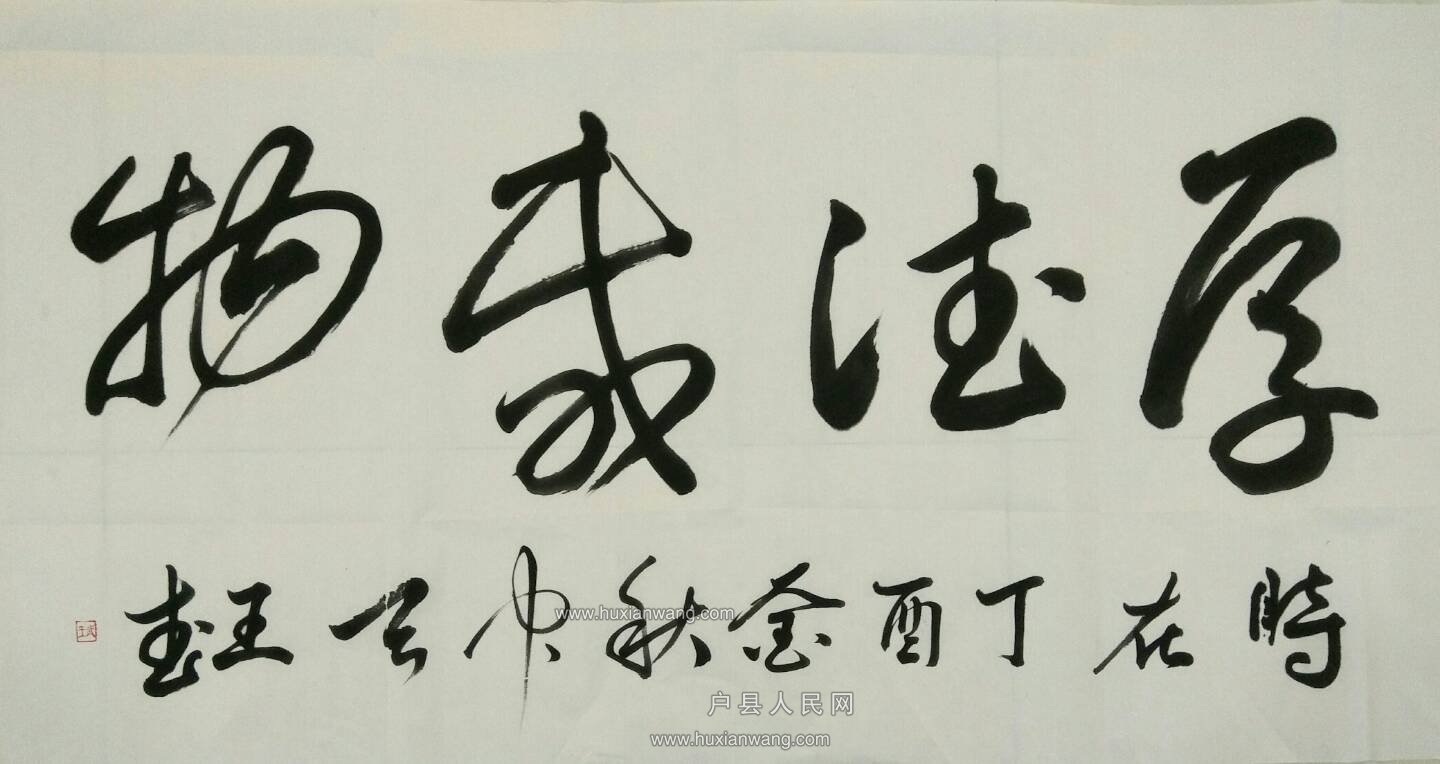 厚德载物
時在丁酉金秋中天王武
www.huxianwang.com
户县人民网
www.huxianwang.com